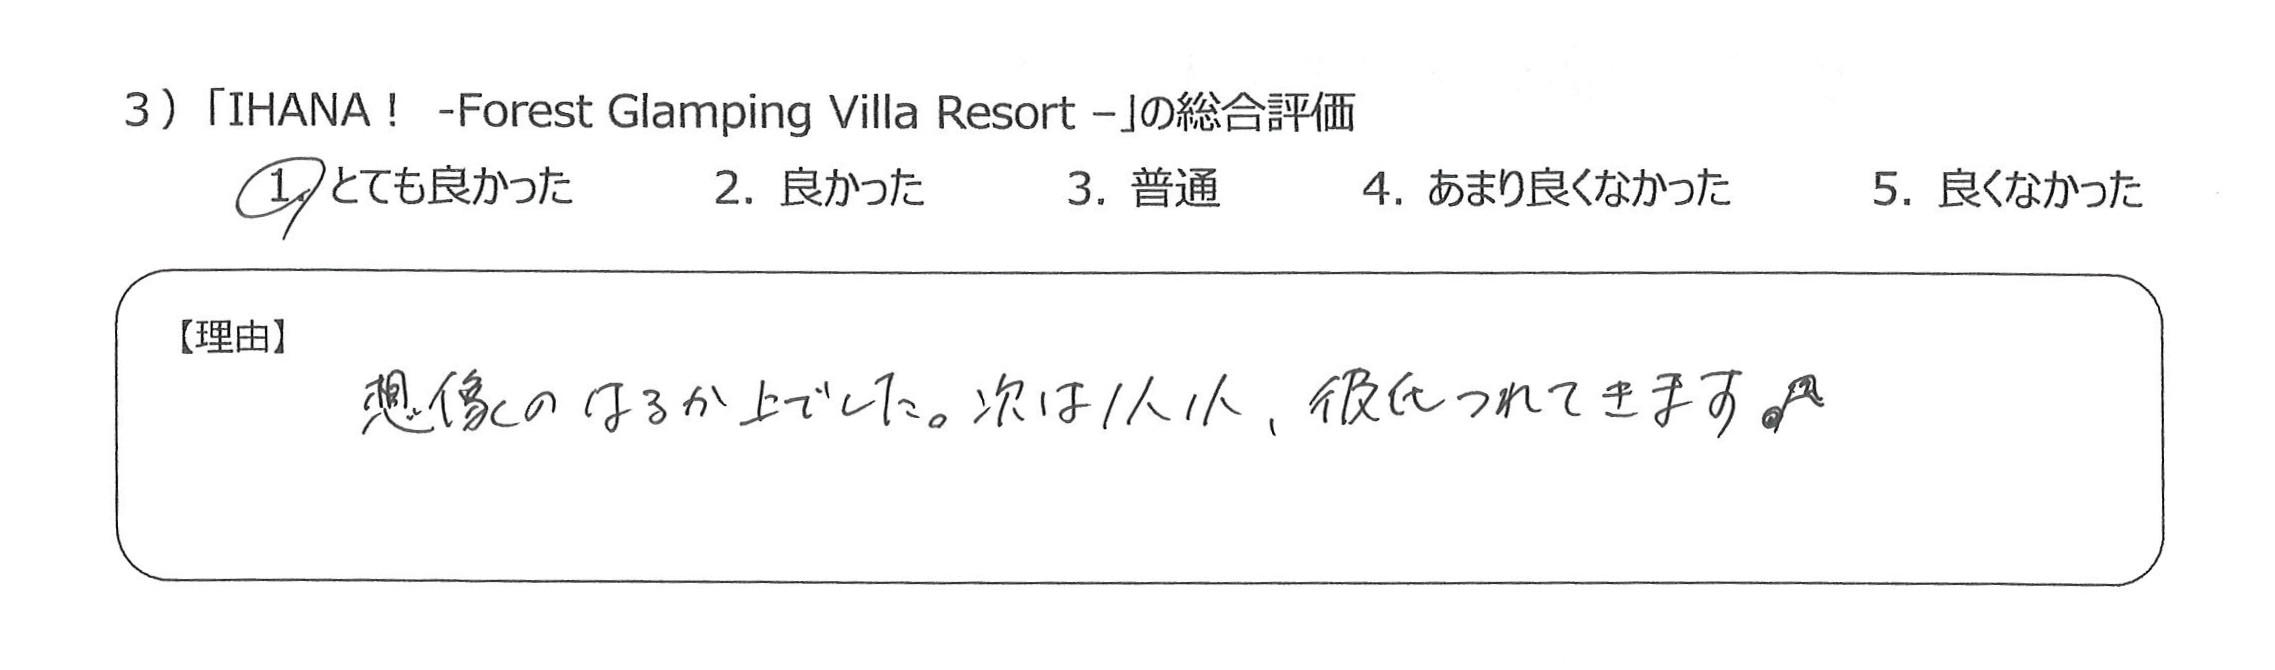 3）「IHANA！ -Forest Glamping Villa Resort –」の総合評価
1. とても良かった 2. 良かった 3. 普通 4. あまり良くなかった 5. 良くなかった
【理由】
想像のはるか上でした。次は1人1人、彼氏つれてきます